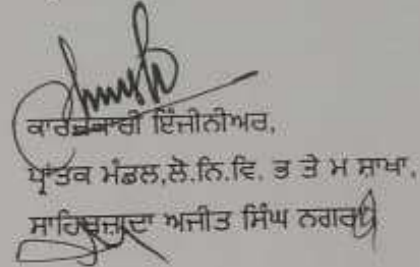 ਕਾਰਜਕਾਰੀ ਇੰਜੀਨੀਅਰ,
ਪ੍ਰਾਂਤਕ ਮੰਡਲ,ਲੋ.ਨਿ.ਵਿ. ਭ ਤੇ ਮ ਸ਼ਾਖਾ,
ਸਾਹਿਬਜ਼ਾਦਾ ਅਜੀਤ ਸਿੰਘ ਨਗਰ।